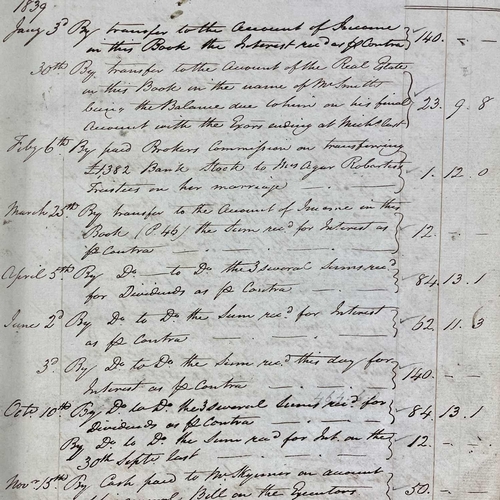 1839
Jany 3d By transfer to the Account of Income
in this Book the Interest recd as p Contra 140. – –
30th By transfer to the Account of the Real Estate
in this Book in the name of Mr Smith
being the Balance due to him on his final
Account with the Exors ending at Michs last 23. 9. 8
Feby 6th By paid Brokers Commission on transferring
£1,382 Bank Stock to Mrs Agar Robartes
Trustees on her marriage 1. 12. 0
March 25th By transfer to the Account of Income in this
Book (P 46) the Sum recd for Interest as
p Contra 12. – –
April 5th By Do to Do the 3 several Sums recd
for Dividends as p Contra 84. 13. 1
June 2d By Do to Do the Sum recd for Interest
as p Contra 62. 11. 3
3d By Do to Do the Sum recd this day for
Interest as p Contra 140. – –
Octr 10th By Do to Do the 3 several Sums recd for
Dividends as p Contra 84. 13. 1
By Do to Do the Sum recd for Int. on the
30th Septr last 12. – –
Novr 15th By Cash paid to Mr Skynner on account
Bill on the Executors 50. – –